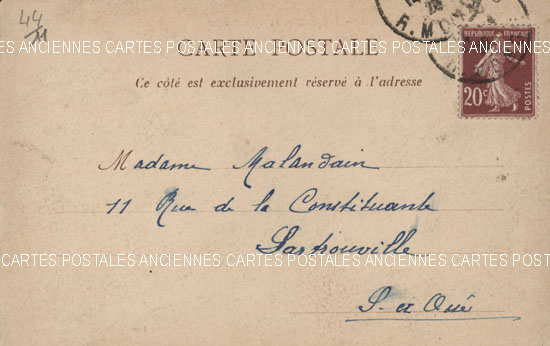 44
CARTES POSTALES ANCIENNES CARTES POSTALES ANCIENNES CARTES POSTALES ANCIENNES
CARTE POSTALE
Ce côté est exclusivement réservé à l'adresse
REPUBLIQUE FRANCAISE
20c
POSTES
Madame Malandain
11 Rue de la Constituante
Sartrouville
CARTES POSTALES ANCIENNES CARTES POSTALES ANCIENNES CARTES POSTALES ANCIENNES
S. et Oise